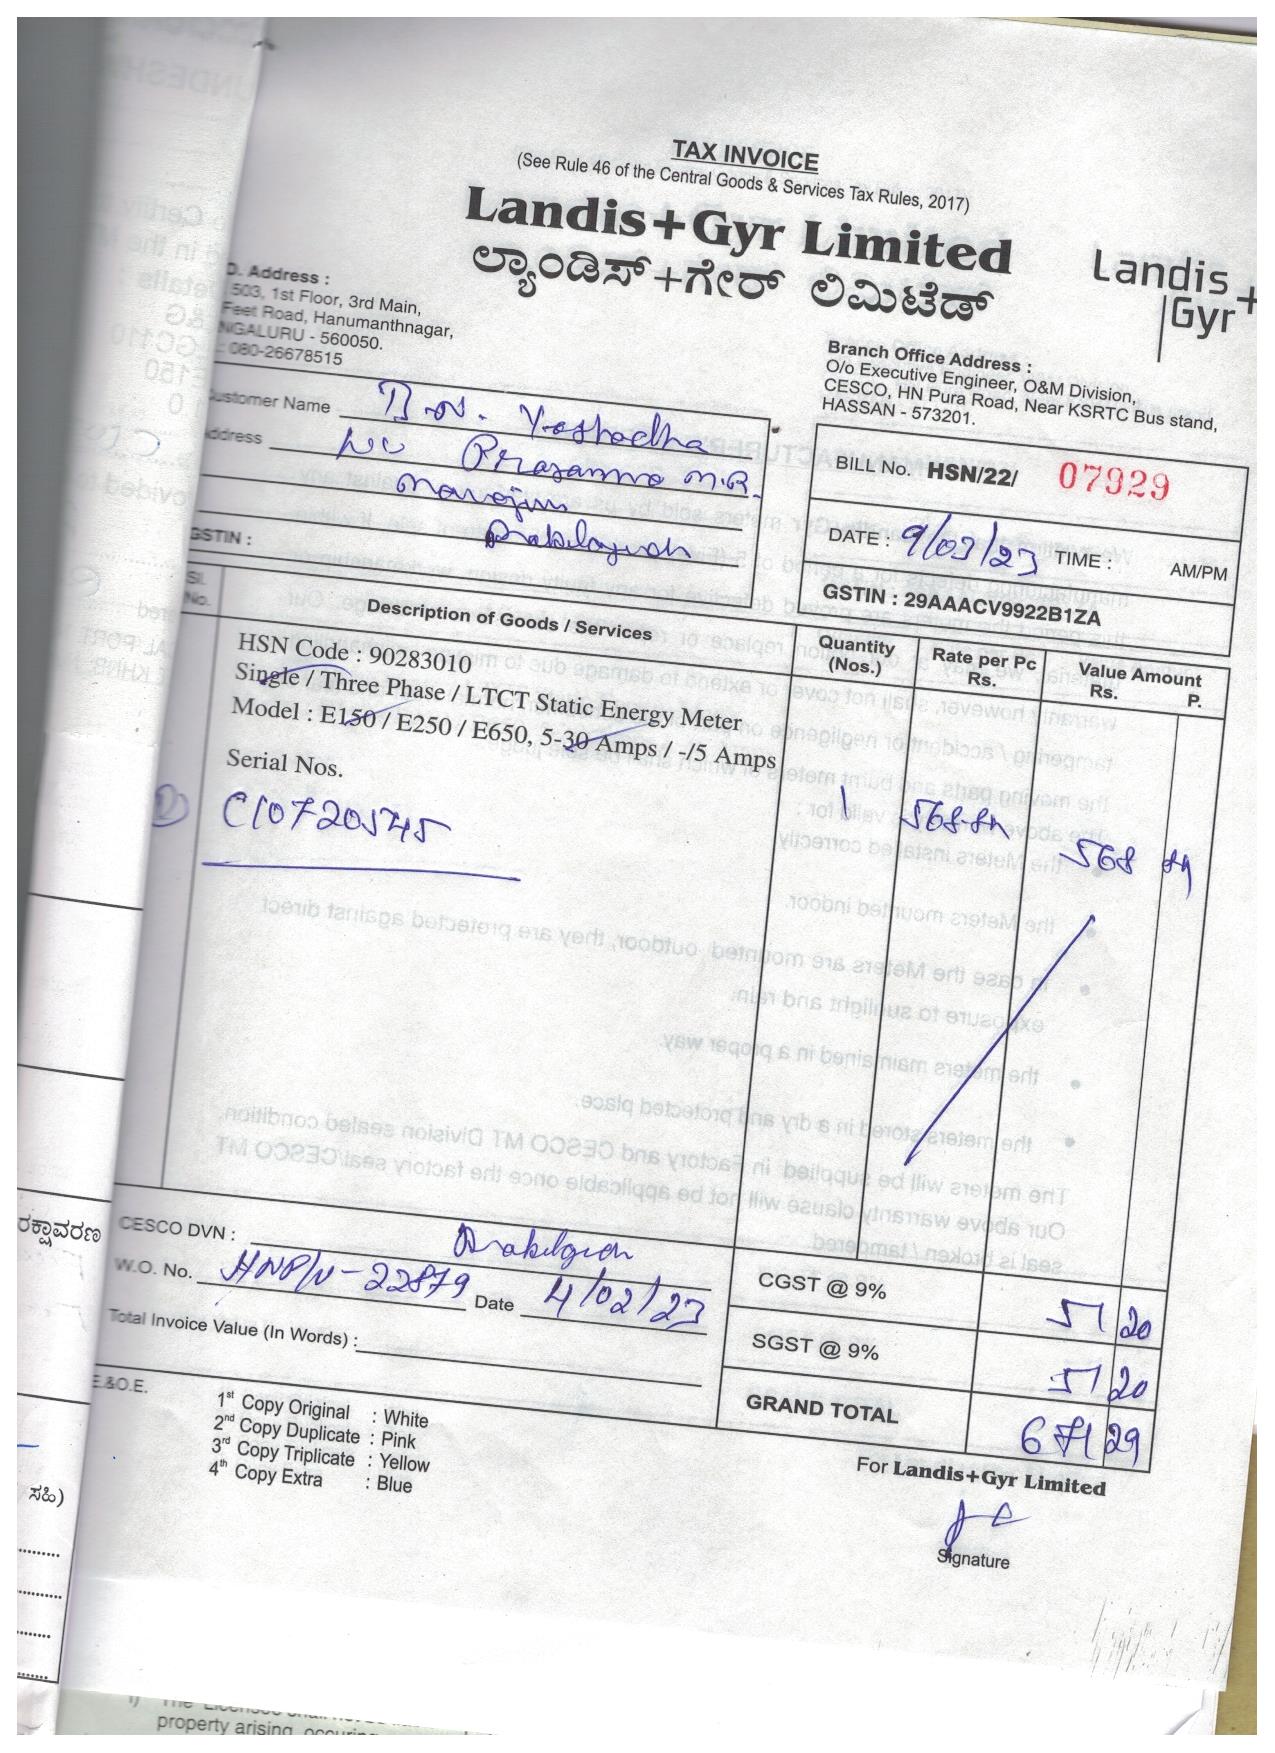 TAX INVOICE
(See Rule 46 of the Central Goods & Services Tax Rules, 2017)
Landis+Gyr Limited
ಲ್ಯಾಂಡಿಸ್+ಗೇರ್ ಲಿಮಿಟೆಡ್
Landis+
Gyr
O. Address :
503, 1st Floor, 3rd Main,
Feet Road, Hanumanthnagar,
NGALURU - 560050.
: 080-26678515
Branch Office Address :
O/o Executive Engineer, O&M Division,
CESCO, HN Pura Road, Near KSRTC Bus stand,
HASSAN - 573201.
Customer Name Yashodha
Address Prasanna M.R.
GSTIN :
BILL No. HSN/22/ 07929
DATE : 9/03/23 TIME : AM/PM
GSTIN : 29AAACV9922B1ZA
Sl. No. Description of Goods / Services Quantity (Nos.) Rate per Pc Rs. Value Amount Rs. P.
HSN Code : 90283010
Single / Three Phase / LTCT Static Energy Meter
Model : E150 / E250 / E650, 5-30 Amps / -/5 Amps
Serial Nos.
1) C10720545 1 568 568
CESCO DVN :
W.O. No. HNP/N-22879 Date 4/02/23
Total Invoice Value (In Words) :
CGST @ 9% 51 20
SGST @ 9% 51 20
GRAND TOTAL 671 29
E.&O.E.
1st Copy Original : White
2nd Copy Duplicate : Pink
3rd Copy Triplicate : Yellow
4th Copy Extra : Blue
For Landis+Gyr Limited
Signature
ರಕ್ಷಾವರಣ
ಸಹಿ)
property arising